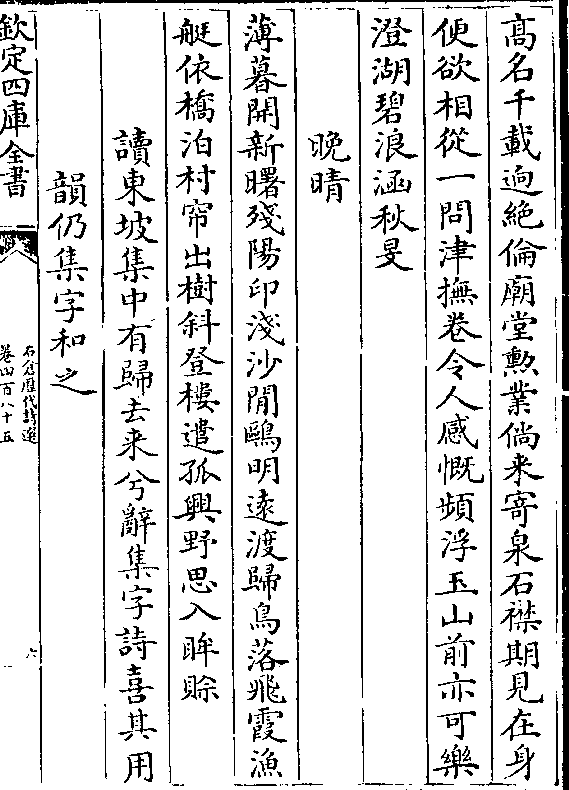 高名千載逈絶倫廟堂勲業倘来寄泉石襟期見在身
便欲相從一問津撫卷令人感慨頻浮玉山前亦可樂
澄湖碧浪涵秋旻
晚晴
薄暮開新曙殘陽印淺沙閒鷗明遠渡歸鳥落飛霞漁
艇依橋泊村帘出樹斜登樓遣孤興野思入眸賒
讀東坡集中有歸去来兮辭集字詩喜其用
韻仍集字和之
欽定四庫全書
石倉歴代詩選
卷四百八十五
六